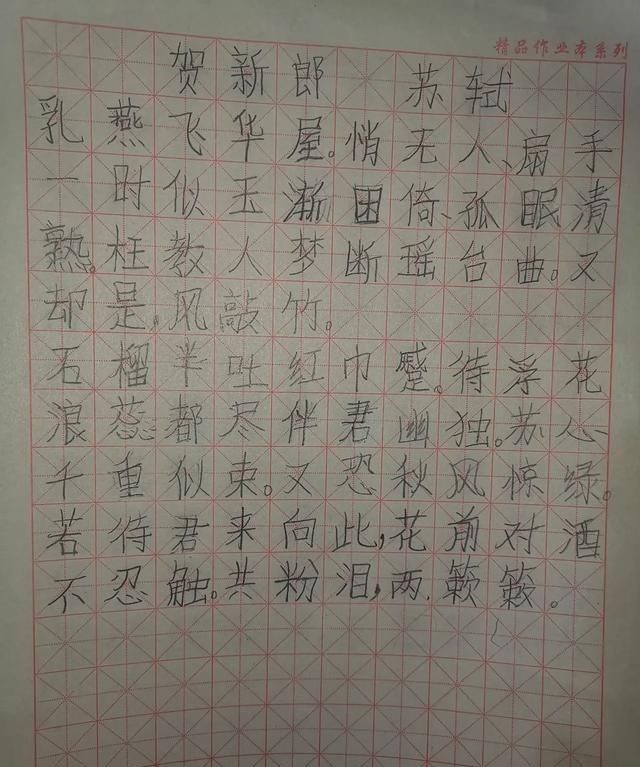 精品作业本系列
贺新郎 苏轼
乳燕飞华屋。悄无人、扇手
一时似玉渐困倚、孤眠清
熟。枉教人梦断瑶台曲。又
却是,风敲竹。
石榴半吐红巾蹙。待浮花
浪蕊都尽伴君幽独。苏心
千重似束。又恐秋风惊绿。
若待君来向此,花前对酒
不忍触。共粉泪,两簌簌。